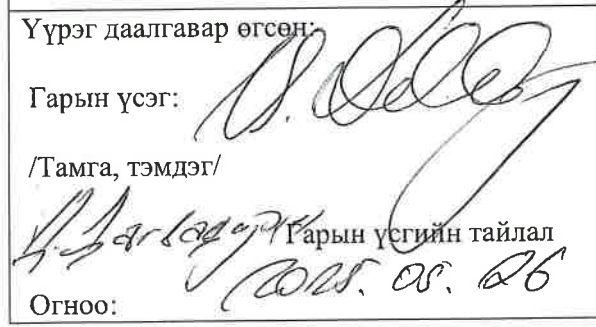 Үүрэг даалгавар өгсөн:
Гарын үсэг:
/Тамга, тэмдэг/
Гарын үсгийн тайлал
Огноо: 2025. 05. 26